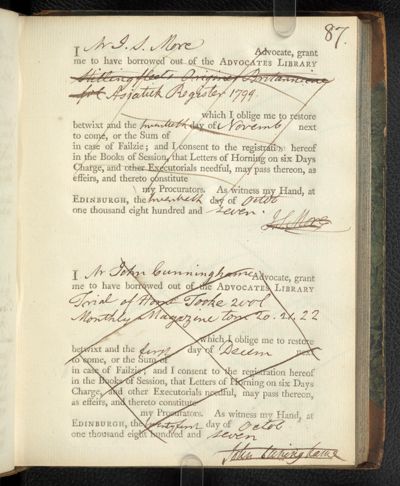 87.
I Mr J. S. More Advocate, grant
me to have borrowed out of the ADVOCATES LIBRARY
Stillingfleets Origines Britannicae
fol Asiatick Register 1799.
which I oblige me to restore
betwixt and the twentieth day of Novemb next
to come, or the Sum of
in case of Failzie; and I consent to the registration hereof
in the Books of Session, that Letters of Horning on six Days
Charge, and other Executorials needful, may pass thereon, as
effeirs, and thereto constitute
my Procurators. As witness my Hand, at
EDINBURGH, the twentieth day of Octob
one thousand eight hundred and seven.
J. S. More
I Mr John Cunninghame Advocate, grant
me to have borrowed out of the ADVOCATES LIBRARY
Trial of Horne Tooke 2 vol
Monthly Magazine tom 20. 21. 22
which I oblige me to restore
betwixt and the first day of Decem next
to come, or the Sum of
in case of Failzie; and I consent to the registration hereof
in the Books of Session, that Letters of Horning on six Days
Charge, and other Executorials needful, may pass thereon,
as effeirs, and thereto constitute
my Procurators. As witness my Hand, at
EDINBURGH, the twentyfirst day of Octob
one thousand eight hundred and seven
John Cuninghame